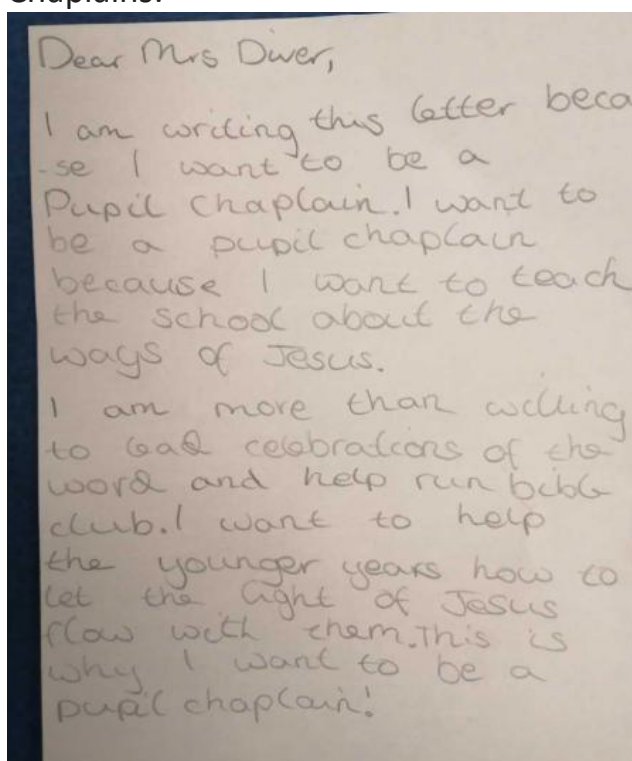 Chaplains.
Dear Mrs Diver,
I am writing this letter beca
-se I want to be a
Pupil chaplain. I want to
be a pupil chaplain
because I want to teach
the school about the
ways of Jesus.
I am more than willing
to lead celebrations of the
word and help run bible
club. I want to help
the younger years how to
let the light of Jesus
flow with them. This is
why I want to be a
pupil chaplain!